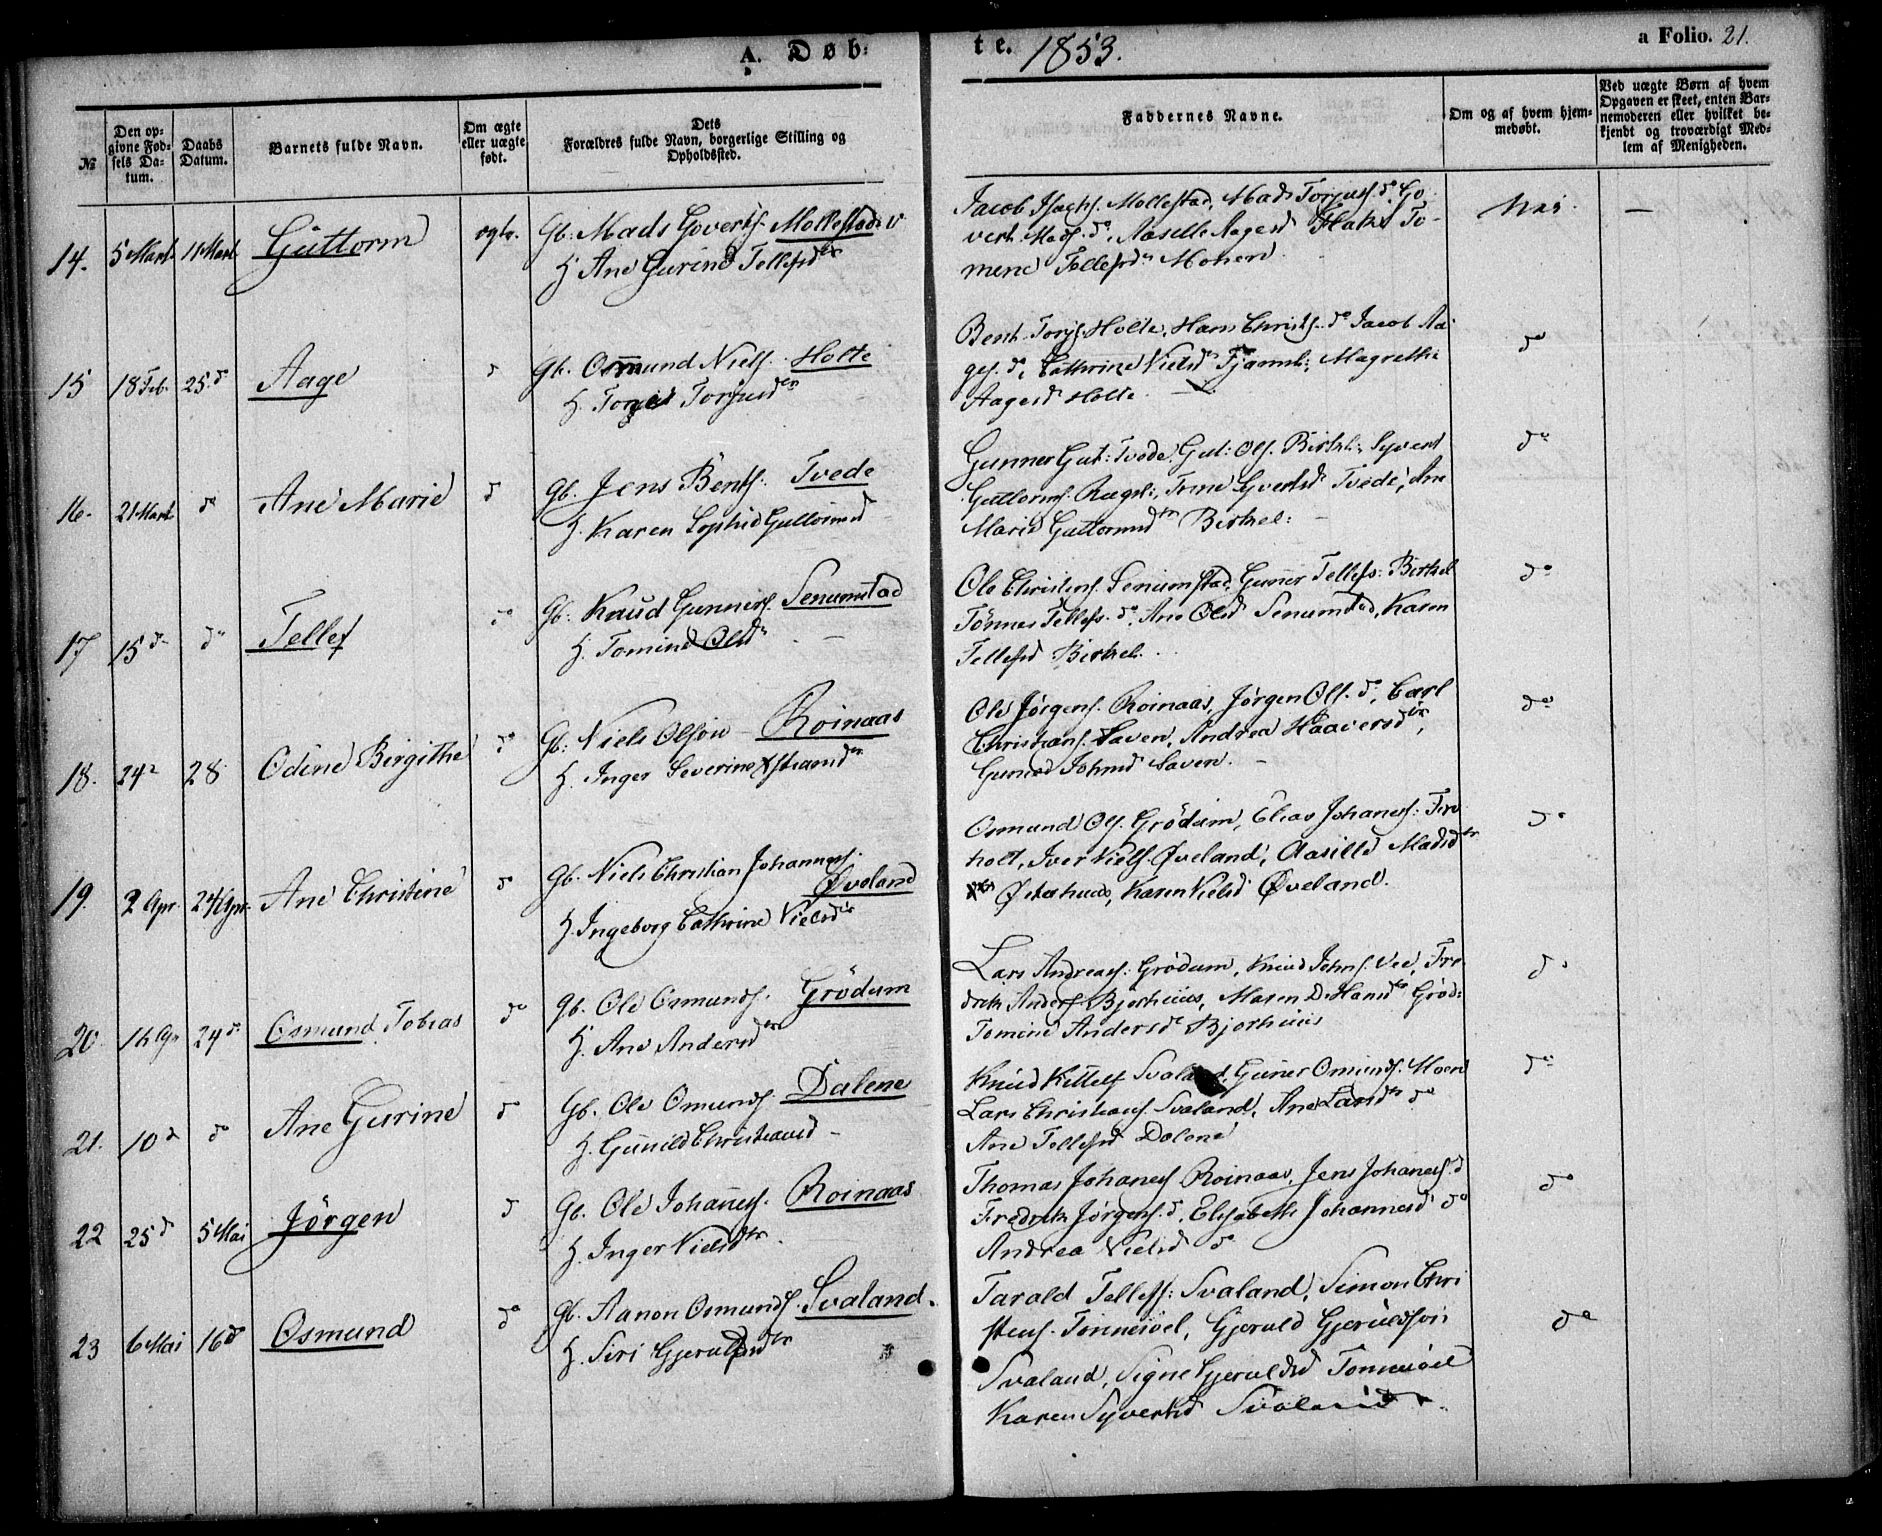 A. Døb: te. 1853. a Folio. 21.
№
Den op-
givne Fød-
sels Da-
tum.
Daabs
Datum.
Barnets fulde Navn.
Om ægte
eller uægte
født.
Dets
Forældres fulde Navn, borgerlige Stilling og
Opholdssted.
Faddernes Navne.
Om og af hvem hjem-
medøbt.
Ved uægte Børn af hvem
Opgaven er skeet, enten Bar-
nemoderen eller hvilket be-
kjendt og troværdigt Med-
lem af Menigheden.
14. 5 Mart 11 Mart Guttorm ægte. Gb. Mads Goverts. Mollestad
H. Ane Gurine Tellefsdtr
Jacob Isachs. Mollestad, Mads Torjus. do, Go-
vert Mads. do, Aaselle Aagesd Flake To-
mine Tellefsd Moner
Nei. —
15 18 Feb. 25. d Aage d Gb. Osmund Niels. Holte
H. Torjusdtr
Bent Torjs. Holte, Hans Christs. do Jacob Aa-
ges. d, Cathrine Nielsd Magrethe
Aagesd Holte.
do
16. 21 Mart do Ane Marie d Gb. Jens Bents. Tvede
H. Karen Sophie Guttormsd
Gunner Gut: Tvede, Gut: Ols. Birkel: Syvert
Guttorms. Tone Syvertsd Tvede, Ane
Marie Guttormsdtr Birkel: —
do
17 15 do do Tellef do Gb. Knud Gunners. Senumstad
H. Tomine Olsd —
Ole Christens. Senumstad, Gunner Tellefs: Birkel
Tönnes Tellefs. do, Ane Olsd Senumstad, Karen
Tellefsd Birkel.
do
18. 24 28 Odine Birgithe do Gb: Niels Olson Roinaas
H. Inger Severine
Ole Jörgens. Roinaas, Jörgen Ols. do, Carl
Christians. Saven, Andrea Haaversdtr,
Johnsd Saven. —
do
19. 2 Apr. 24 Apr. Ane Christine d Gb. Niels Christian Johanness.
Øveland
H. Ingeborg Cathrine Nielsdtr
Osmund Ols. Grödum, Elias Johaness: Fire
holt, Iver Niels. Øveland, Aasille Madsdtr
Østerhuus, Karen Nielsd Øveland.
do
20. 16 Ap 24 d Osmund Tobias do Gb. Ole Osmunds. Grödum
H. Ane Andersdtr
Lars Andreass: Grödum, Knud Johns. Vee, Fre-
drik Anders. Bjorhuus, Maren D. Hansdtr Gröd:
Tomine Andersd Bjorhuus
do
21. 10 d do Ane Gurine do Gb. Ole Omunds. Dalene
H. Gunild Christiansd —
Knud Kittels. Svaland, Guner Omunds. Moen
Lars Christians. Svaland, Ane Larsdtr do
Ane Tellefsd Dalene
do
22 25 d 5 Mai Jörgen d Gb. Ole Johaness. Roinaas
H. Inger Nielsdtr.
Thomas Johaness. Roinaas, Jens Johaness. d
Fredrik Jörgens. d, Elisabeth Johannesd do
Andrea Nielsd do
do
23 6 Mai 16 d Osmund do Gb. Aanon Osmunds. Svaland.
H. Siri Gjeruldsdtr
Tarald Tellefs: Svaland, Simon Chri
stens. Tonneiöel, Gjeruld Gjeruldson
Svaland, Signe Gjeruldsd Tonneiöel
Karen Syvertsd Svaland
do